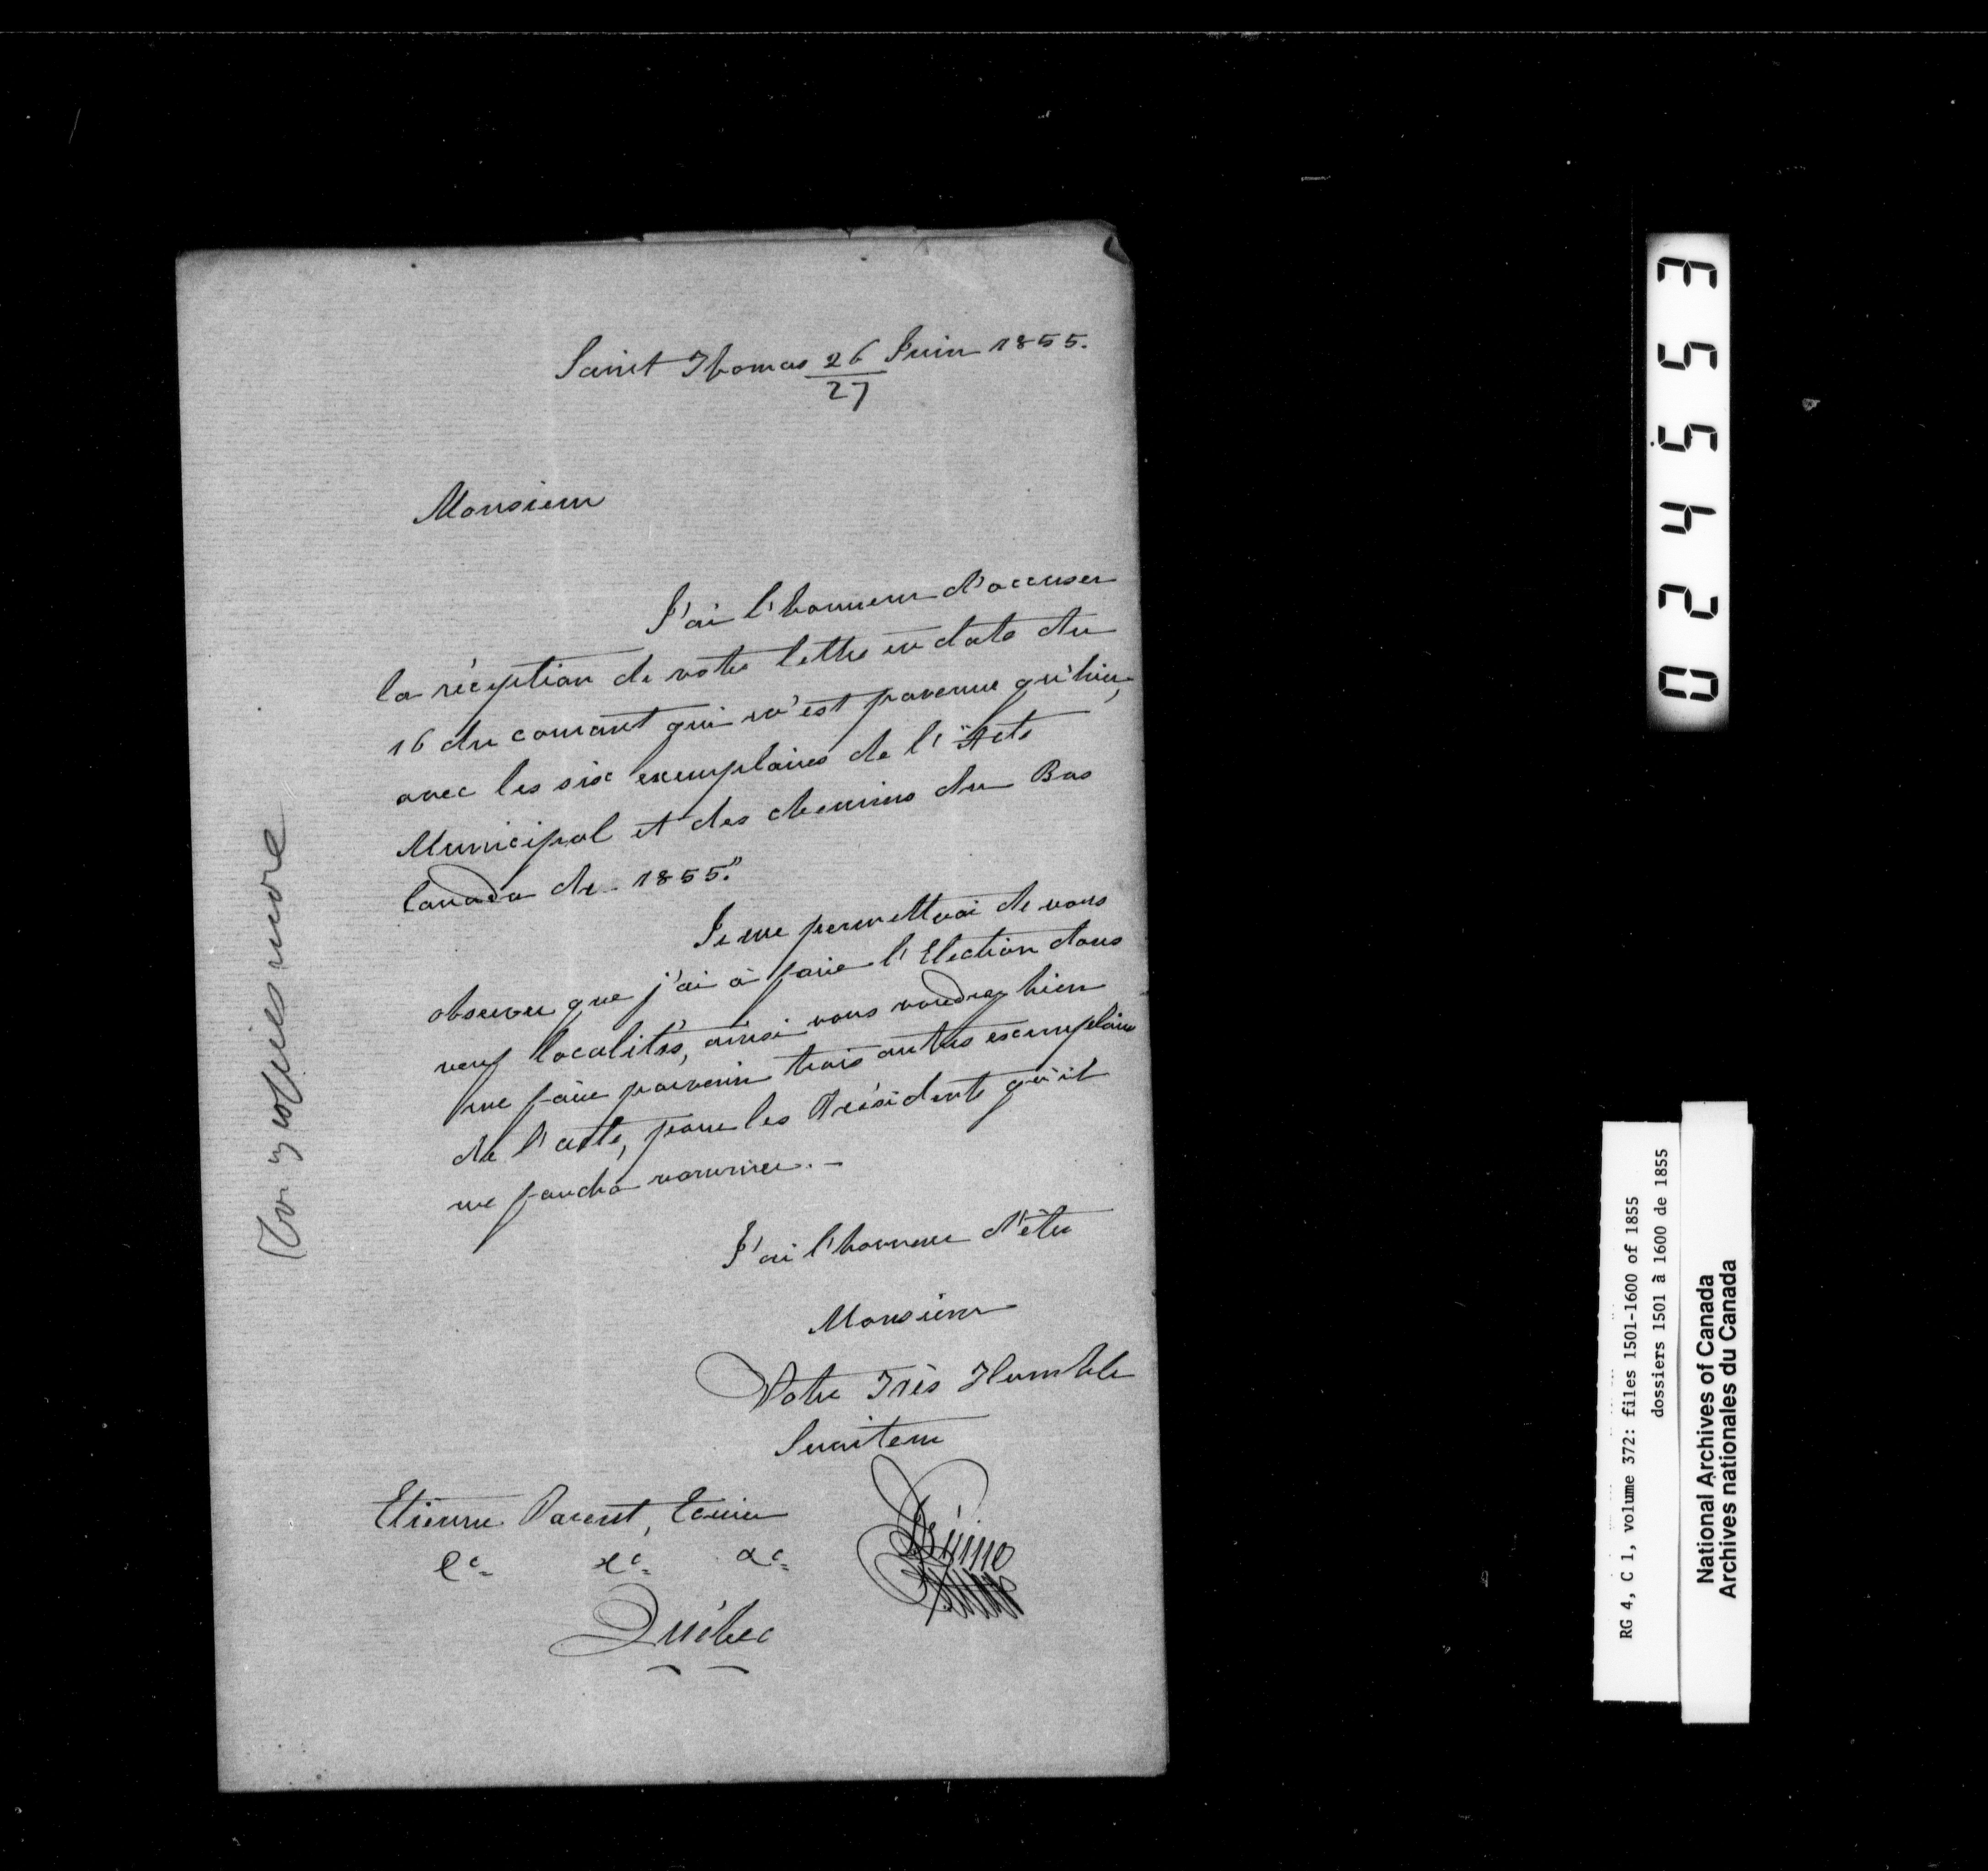 Saint Thomas 26 Juin 1855.
27
Monsieur
J'ai l'honneur d'accuser
la réception de votre lettre en date du
16 du courant qui m'est parvenue qu'hier,
avec les six exemplaires de l'"Acte
Municipal et des chemins du Bas
Canada de 1855."
Je me permettrai de vous
observer que j'ai à faire l'Election dans
neuf localités, ainsi vous voudrez bien
me faire parvenir trois autres exemplaires
de l'acte, pour les Présidents qu'il
me faudra nommer. -
J'ai l'honneur d'être
Monsieur
Votre Très Humble
Serviteur
Etienne Parent, Ecuier
&c. &c. &c.
Québec
copies more
024553
RG 4, C 1, volume 372: files 1501-1600 of 1855
dossiers 1501 à 1600 de 1855
National Archives of Canada
Archives nationales du Canada